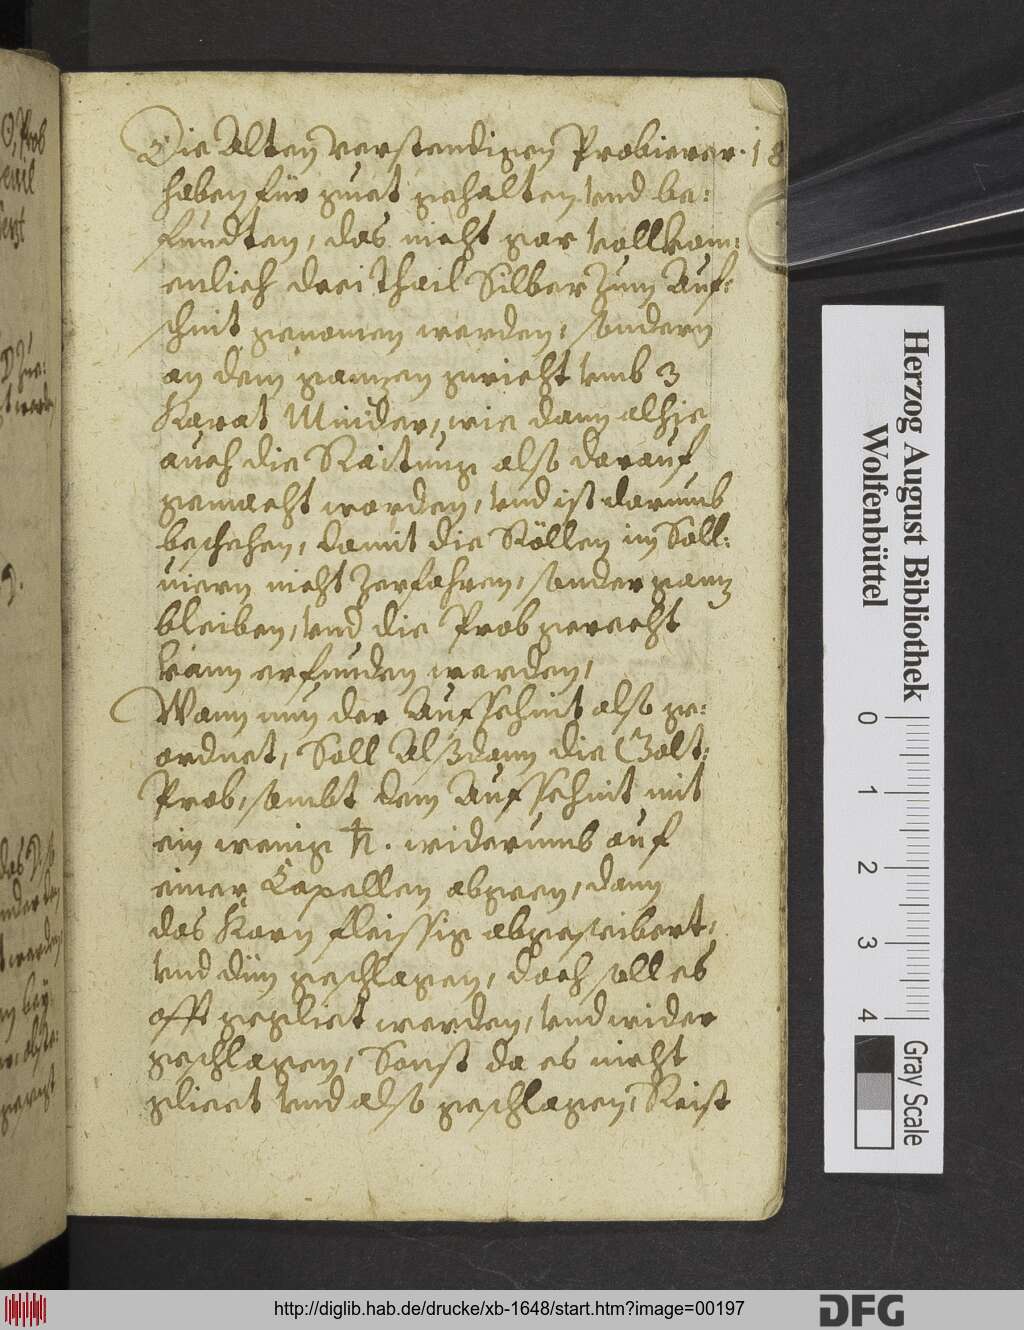 Die Alten verstendigen Probierer. 18
haben für guet gehalten vnd be:
fundten, das nicht gar vollkom:
enlich drei Thail Silber zum Auf:
schnit genomen werden, sondern
an dem ganzen gericht vmb 3
Karat Minder, wie dann alhie
auch die Raitung also darauf
gemacht worden, vnd ist darumb
beschehen, damit die Röllen im Soll:
uiern nicht Zerfahren, sonder ganz
bleiben, vnd die Prob gerecht
kann erfunden werden,
Wann nun der Aufschnit also ge:
ordnet, Soll Alßdann die Golt:
Prob, sambt dem Aufschnit mit
ein wenig ♄. widerumb auf
einer Capellen abgeen, dann
das Karn fleissig abges
vnd dün geschlagen, doch soll es
offt gegliet werden, vnd wider
geschlagen, Sonst da es nicht
glieet vnd also geschlagen, Reist
Herzog August Bibliothek
Wolfenbüttel
0 1 2 3 4
Gray Scale
http://diglib.hab.de/drucke/xb-1648/start.htm?image=00197
DFG